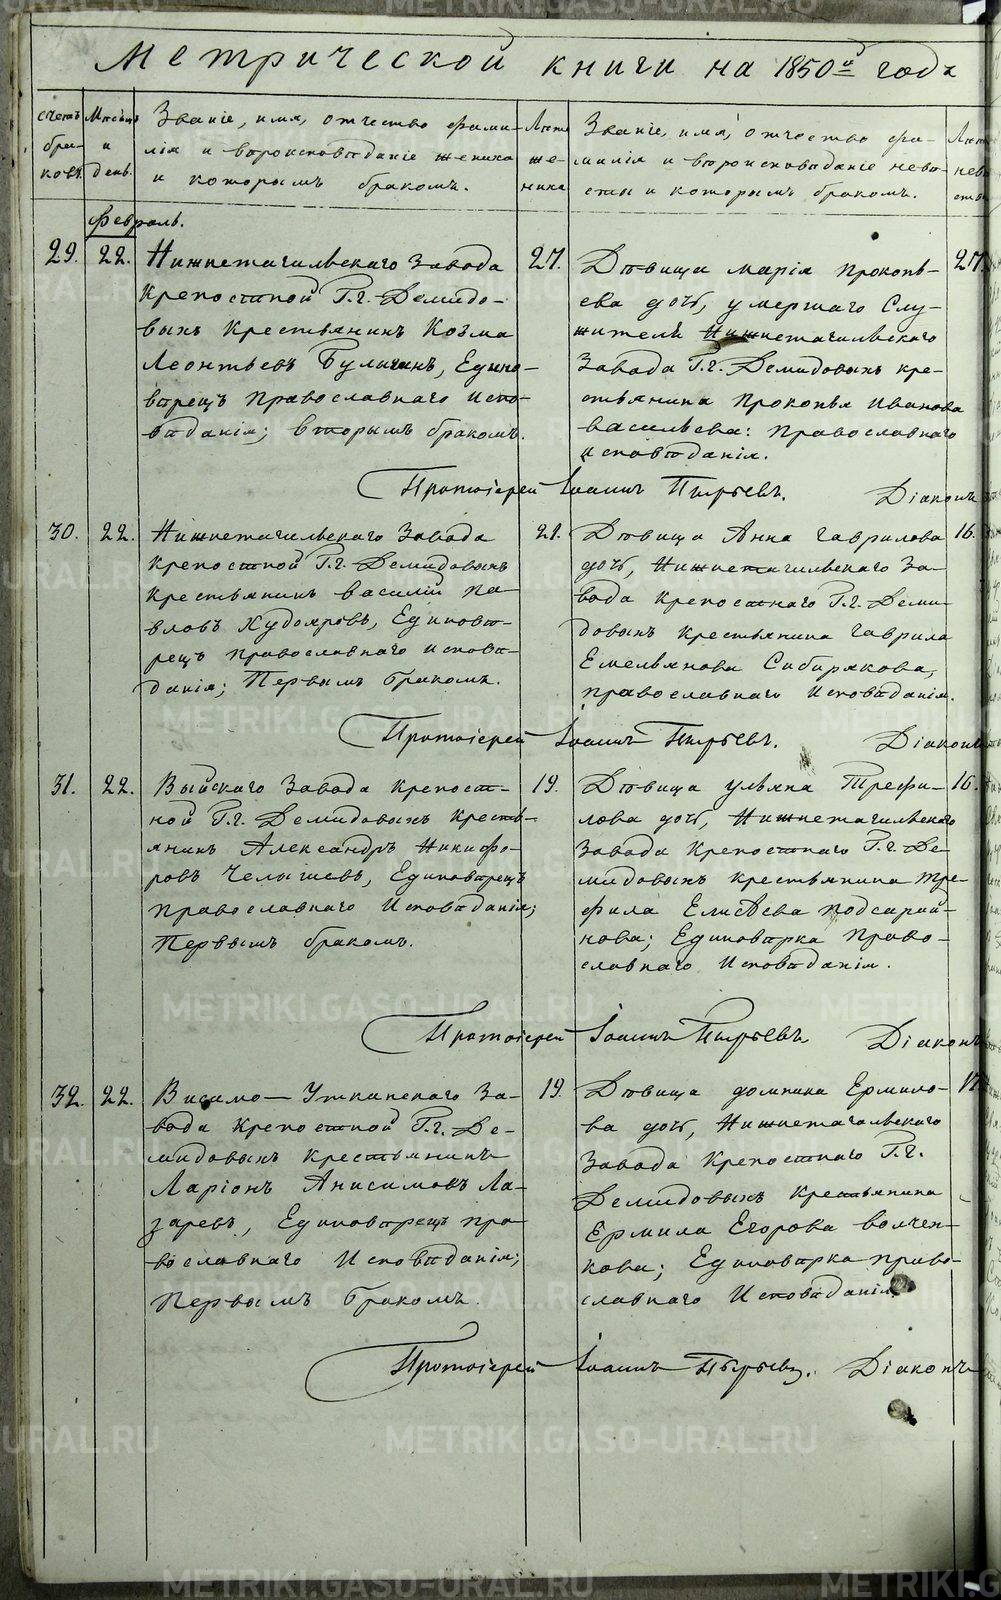 METRIKI.GASO-URAL.RU
Метрической книги на 1850й год
счетъ браковъ.
Месяцъ и день.
Званіе, имя, отчество фами-
лія и вероисповѣданіе жениха
и которымъ бракомъ.
Лѣта
же-
ниха
Званіе, имя, отчество фа-
милія и вероисповѣданіе неве-
сты и которымъ бракомъ.
Февраль.
29. 22.
Нижнетагильскаго Завода
Крепостной Г.г. Демидо-
выхъ Крестьянинъ Козма
Леонтьевъ Булыгинъ, Едино-
верецъ Православнаго испо-
ведания; вторымъ бракомъ.
27.
Девица Марія Прокопь-
ева дочь, умершаго Слу-
жителя Нижнетагильскаго
Завода Г.г. Демидовыхъ кре-
стьянина Прокопья Иванова
Васильева: Православнаго
исповѣданія.
27.
Протоіерей Іоаннъ Пырьевъ. Діаконъ
30. 22.
Нижнетагильскаго Завода
крепостной Г.г. Демидовыхъ
Крестьянинъ Василій Па-
вловъ Худояровъ, Единовѣ-
рецъ православнаго испове-
данія; Первымъ бракомъ.
21.
Дѣвица Анна Гаврилова
дочь, Нижнетагильскаго За-
вода крепостнаго Г.г. Деми-
довыхъ крестьянина Гаврила
Емельянова Сибирякова,
православнаго Исповѣданія.
16.
Протоіерей Іоаннъ Пырьевъ. Діаконъ
31. 22.
Выйскаго Завода крепост-
ной Г.г. Демидовыхъ Кресть-
янинъ Александръ Никифо-
ровъ Челышевъ, Единоверецъ
православнаго Исповѣданія;
Первымъ бракомъ.
19.
Дѣвица Ульяна Трефи-
лова дочь, Нижнетагильскаго
Завода Крепостнаго Г.г. Де-
мидовыхъ крестьянина Тре-
фила Елисѣева
Единоверка Право-
славнаго Исповѣданія.
16.
Протоіерей Іоаннъ Пырьевъ Діаконъ
32. 22.
Висимо-Уткинскаго За-
вода Крепостной Г.г. Де-
мидовыхъ Крестьянинъ
Ларіонъ Анисимовъ Ла-
заревъ, Единоверецъ пра-
вославнаго Исповѣданія;
Первымъ бракомъ.
19.
Дѣвица Домнина Ермило-
ва дочь, Нижнетагильскаго
Завода Крепостнаго Г.г.
Демидовыхъ Крестьянина
Ермила Егорова Волчен-
кова; Единоверка право-
славнаго Исповѣданія.
17
Протоіерей Іоаннъ Пырьевъ. Діаконъ